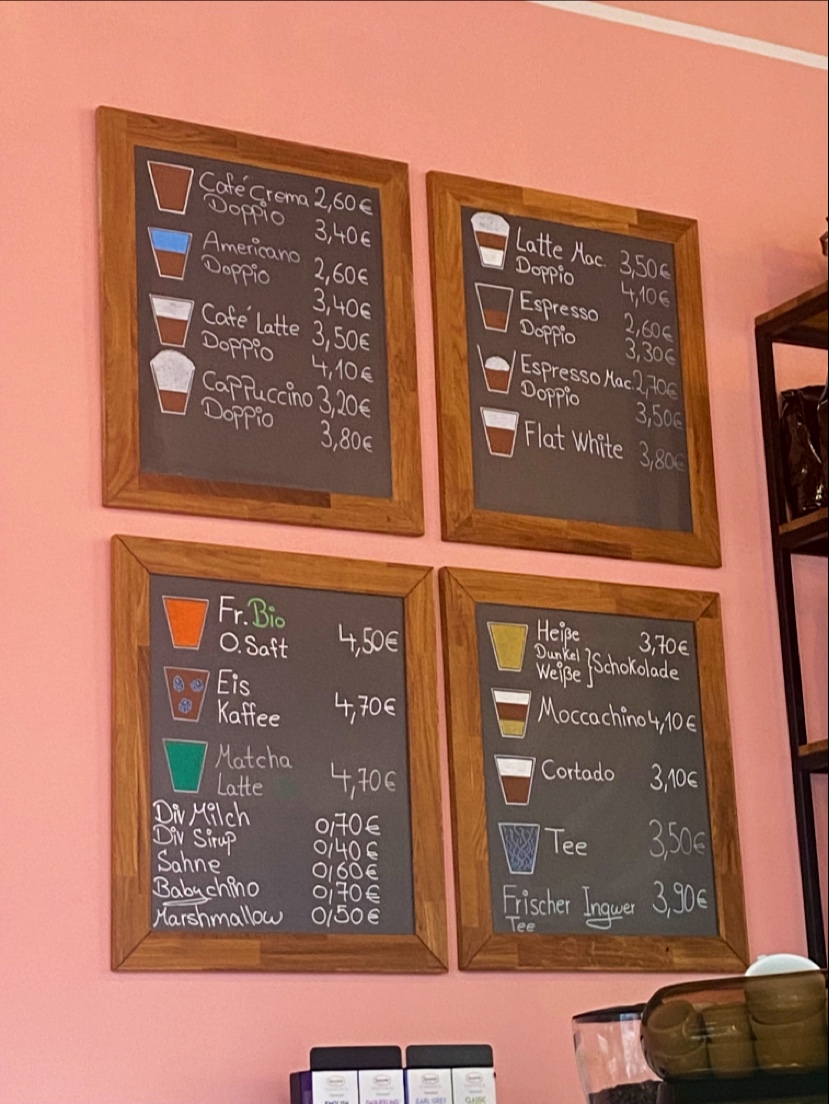 Café Crema 2,60€
Doppio 3,40€
Americano 2,60€
Doppio 3,40€
Café Latte 3,50€
Doppio 4,10€
Cappuccino 3,20€
Doppio 3,80€
Latte Mac. 3,50€
Doppio 4,10€
Espresso 2,60€
Doppio 3,30€
Espresso Mac. 2,70€
Doppio 3,50€
Flat White 3,80€
Fr. Bio
O. Saft 4,50€
Eis
Kaffee 4,70€
Matcha
Latte 4,70€
Div Milch 0,70€
Div Sirup 0,40€
Sahne 0,60€
Babychino 0,70€
Marshmallow 0,50€
Heiße 3,70€
Dunkel } Schokolade
Weiße
Moccachino 4,10€
Cortado 3,10€
Tee 3,50€
Frischer Ingwer 3,90€
Tee
ENGLISH
DARJEELING
EARL GREY
CLASSIC